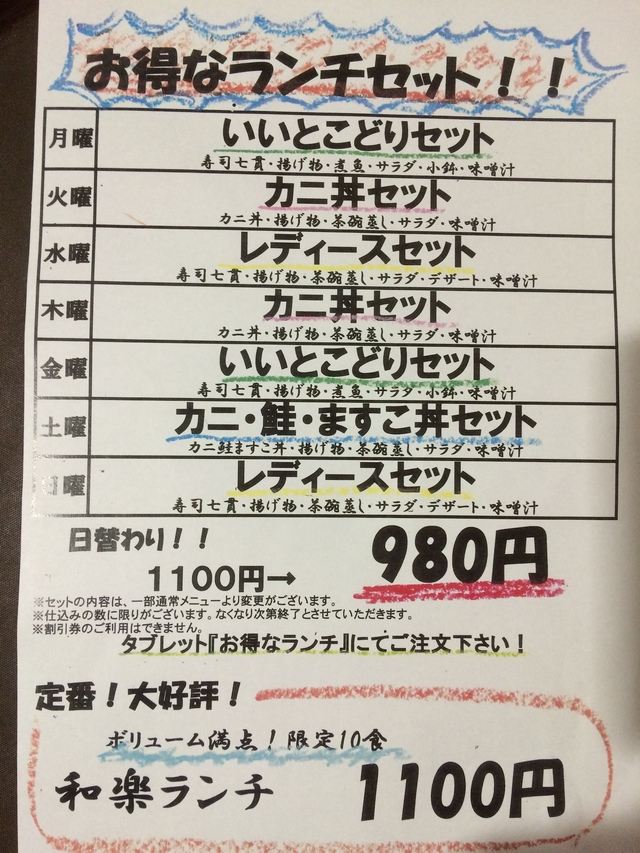 お得なランチセット!!
月曜 いいとこどりセット
寿司七貫・揚げ物・煮魚・サラダ・小鉢・味噌汁
火曜 カニ丼セット
カニ丼・揚げ物・茶碗蒸し・サラダ・味噌汁
水曜 レディースセット
寿司七貫・揚げ物・茶碗蒸し・サラダ・デザート・味噌汁
木曜 カニ丼セット
カニ丼・揚げ物・茶碗蒸し・サラダ・味噌汁
金曜 いいとこどりセット
寿司七貫・揚げ物・煮魚・サラダ・小鉢・味噌汁
土曜 カニ・鮭・ますこ丼セット
カニ鮭ますこ丼・揚げ物・茶碗蒸し・サラダ・味噌汁
日曜 レディースセット
寿司七貫・揚げ物・茶碗蒸し・サラダ・デザート・味噌汁
日替わり!!
1100円→ 980円
※セットの内容は、一部通常メニューより変更がございます。
※仕込みの数に限りがございます。なくなり次第終了とさせていただきます。
※割引券のご利用はできません。
タブレット『お得なランチ』にてご注文下さい!
定番!大好評!
ボリューム満点!限定10食
和楽ランチ 1100円